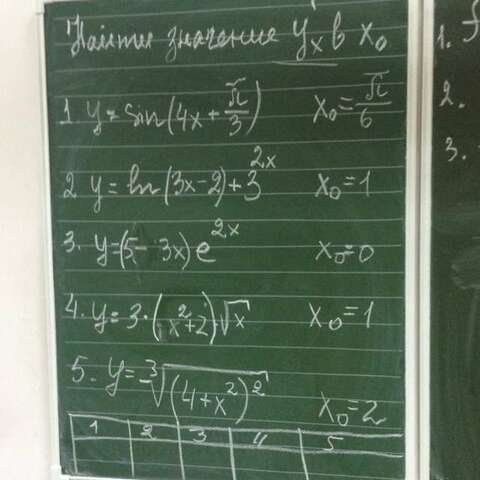 Найти значение y'ₓ в x₀
1. y = sin(4x + π/3) x₀ = π/6
2 y = ln(3x-2) + 3^2x x₀ = 1
3. y = (5 - 3x) e^2x x₀ = 0
4. y = 3·(x²+2)√x x₀ = 1
5. y = ³√(4+x²)² x₀ = 2
1 2 3 4 5
1.
2.
3.